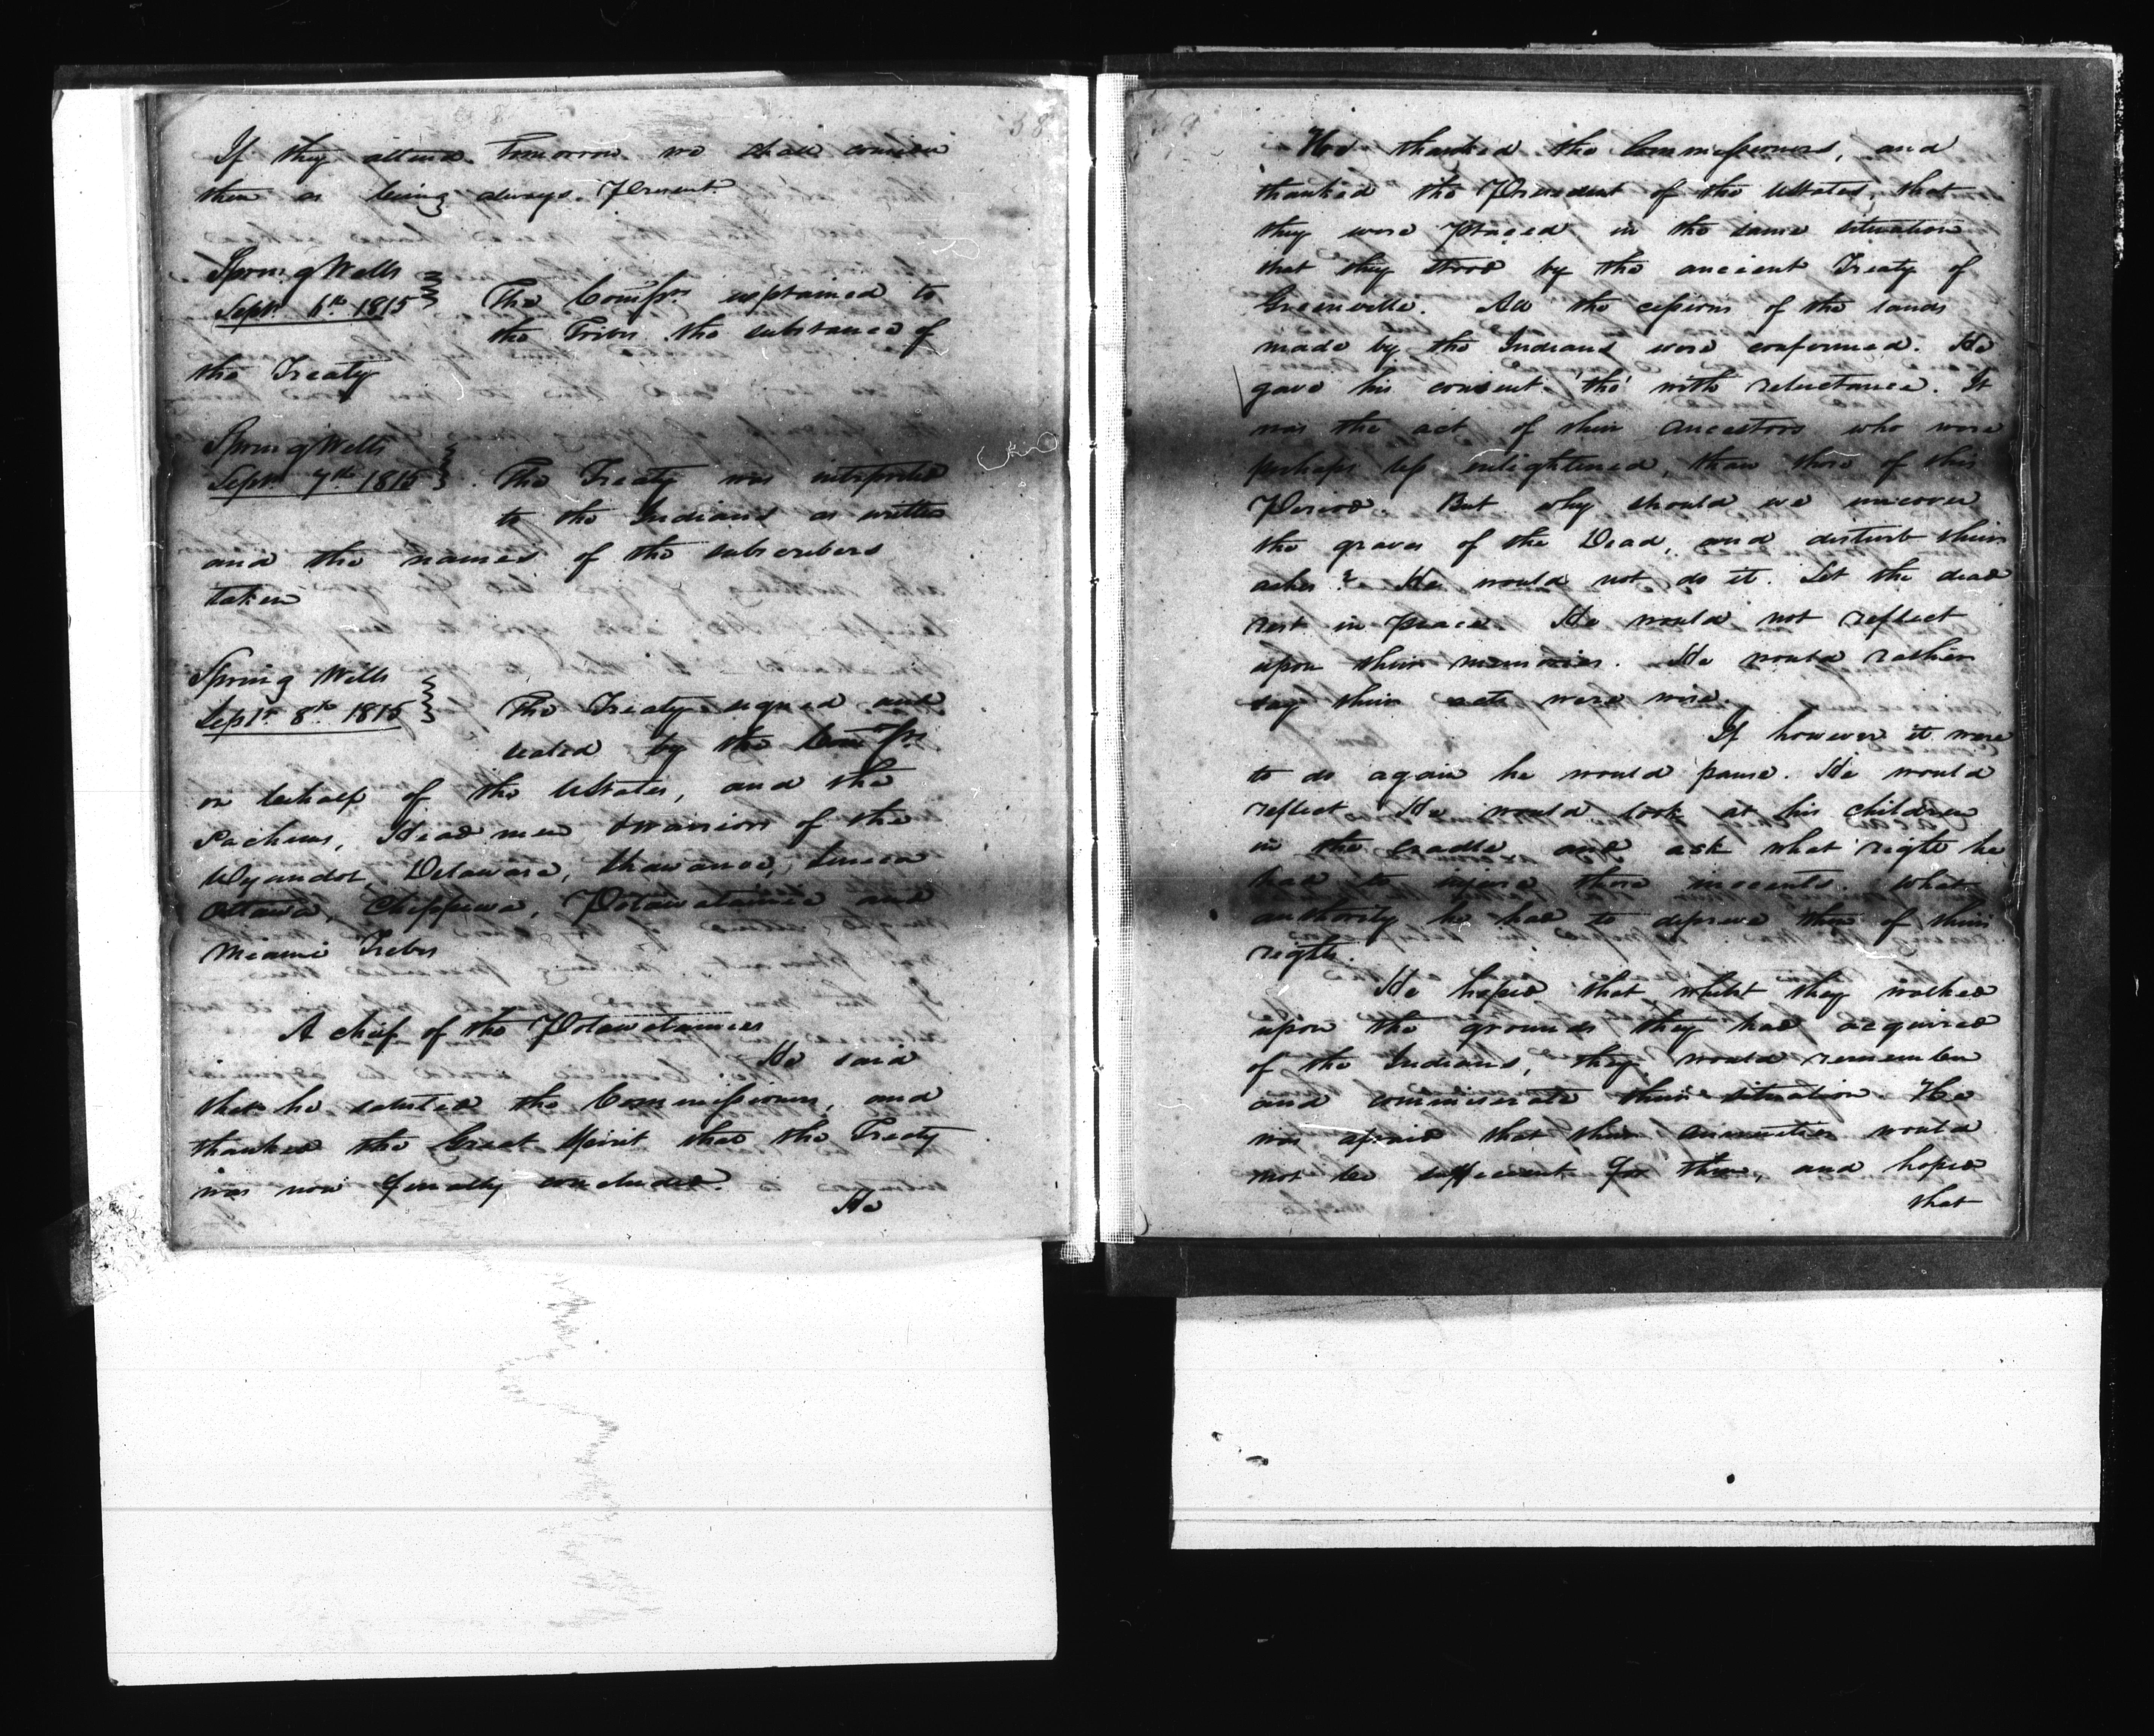 38
If they attend Tomorrow we shall consider
them as being always Present
Spring Wells
Sept. 6th 1815
The Comssrs explained to
the Tribes the substance of
the Treaty
Spring Wells
Sept. 7th 1815
The Treaty was interpreted
to the Indians as written
and the names of the subscribers
taken
Spring Wells
Sept. 8th 1815
The Treaty signed and
sealed by the Comssrs
on behalf of the UStates, and the
Sachems, Head men & warriors of the
Wyandot, Delaware, Shawanoe, Seneca
Ottawa, Chippewa, Potawatamie and
Miami Tribes
A chief of the Potawatamies
He said
that he saluted the Commissioners, and
thanked the Great Spirit that the Treaty
was now finally concluded
He
39
He thanked the Commissioners, and
thanked the President of the UStates, that
they were placed in the same situation
that they stood by the ancient Treaty of
Greenville. All the cessions of the lands
made by the Indians were confirmed. He
gave his consent tho' with reluctance. It
was the act of their ancestors who were
perhaps less enlightened, than those of this
Period. But why should we uncover
the graves of the Dead, and disturb their
ashes? He would not do it. Let the dead
rest in peace. He would not reflect
upon their memories. He would rather
say their acts were wise.
If however it were
to do again he would pause. He would
reflect. He would look at his children
in the cradle and ask what right he
had to injure those innocents. what
authority he had to deprive them of their
rights.
He hoped that whilst they walked
upon the grounds they had acquired
of the Indians, they would remember
and commiserate their situation. He
was afraid that their annuities would
not be sufficient for them, and hoped
that